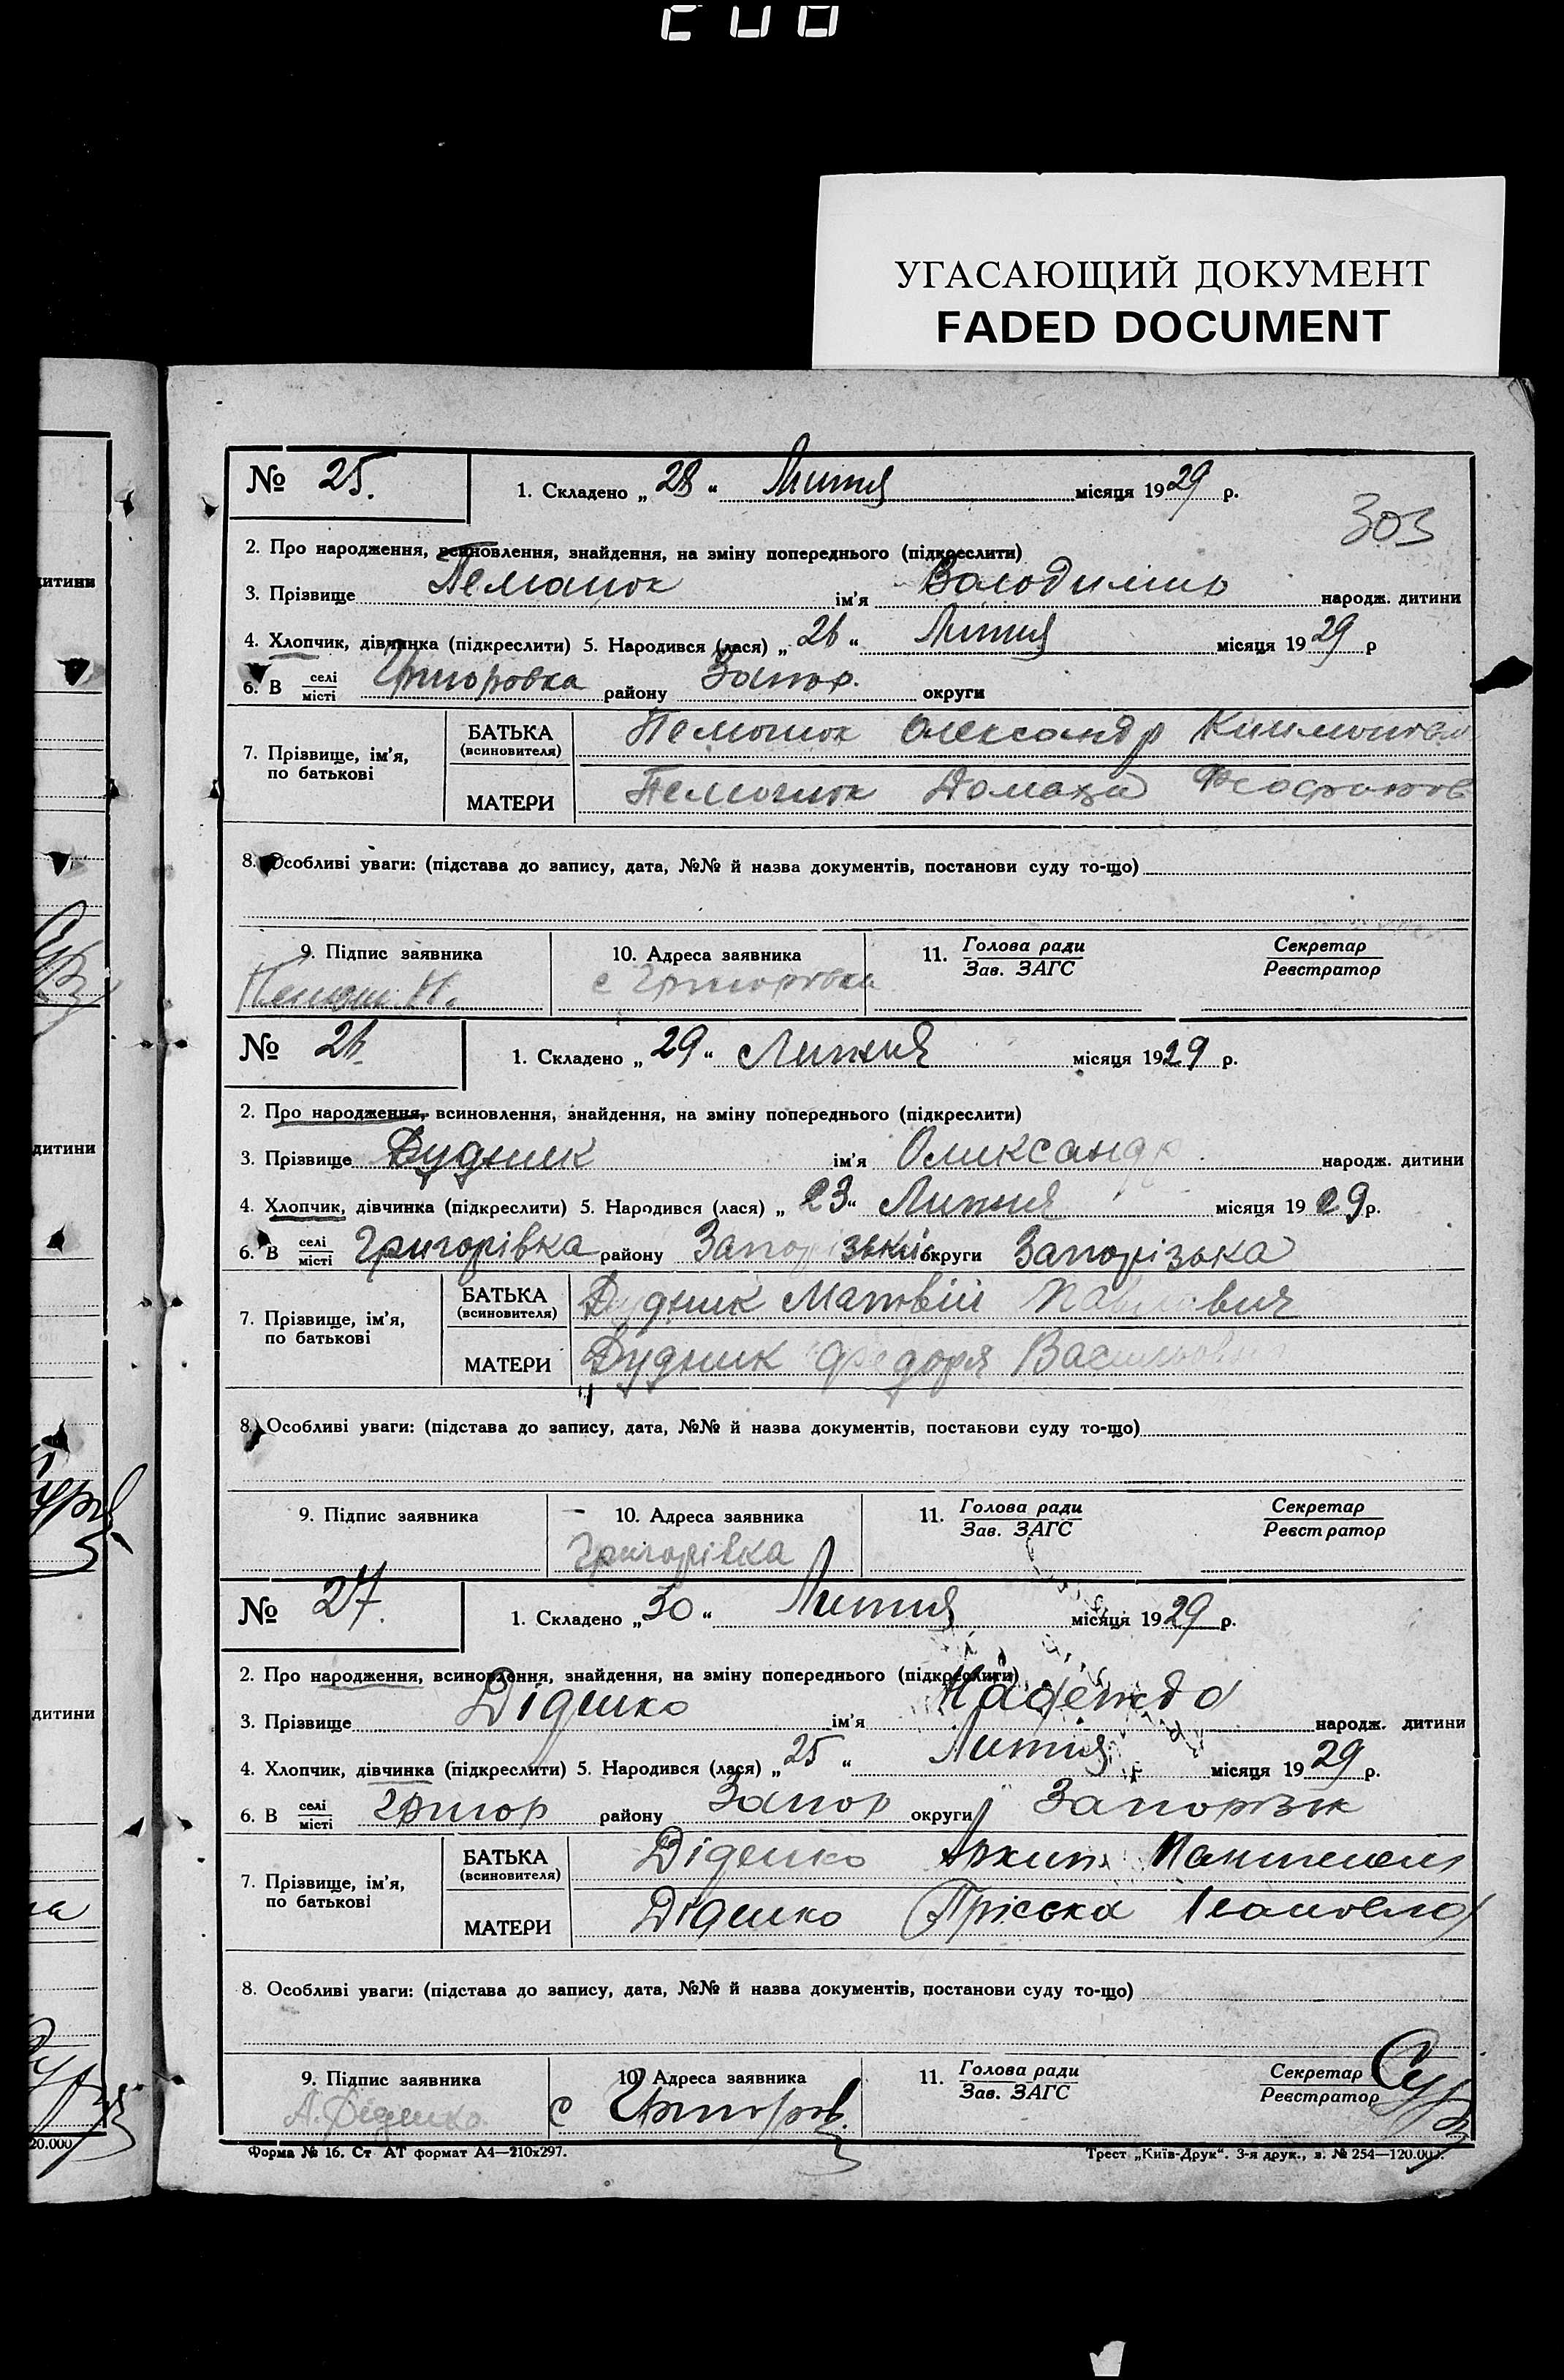 УГАСАЮЩИЙ ДОКУМЕНТ
FADED DOCUMENT
№ 25. 1. Складено „ 28 “ Липня місяця 1929 р.
303
2. Про народження, всиновлення, знайдення, на зміну попереднього (підкреслити)
3. Прізвище ім'я Володимир народж. дитини
4. Хлопчик, дівчинка (підкреслити) 5. Народився (лася) „ 26 “ Липня місяця 1929 р
6. В селі місті Григоровка району Запор. округи
7. Прізвище, ім'я, по батькові
БАТЬКА (всиновителя) Олександр
МАТЕРИ Домаха
8. Особливі уваги: (підстава до запису, дата, №№ й назва документів, постанови суду то-що)
9. Підпис заявника 10. Адреса заявника 11. Голова ради Зав. ЗАГС Секретар Реєстратор
с Григоровка
№ 26. 1. Складено „ 29 “ Липня місяця 1929 р.
2. Про народження, всиновлення, знайдення, на зміну попереднього (підкреслити)
3. Прізвище Дудник ім'я Олександр народж. дитини
4. Хлопчик, дівчинка (підкреслити) 5. Народився (лася) „ 23 “ Липня місяця 1929 р.
6. В селі місті Григорівка району Запорізький округи Запорізька
7. Прізвище, ім'я, по батькові
БАТЬКА (всиновителя) Дудник Матвій Павлович
МАТЕРИ Дудник Федоря Васильовна
8. Особливі уваги: (підстава до запису, дата, №№ й назва документів, постанови суду то-що)
9. Підпис заявника 10. Адреса заявника 11. Голова ради Зав. ЗАГС Секретар Реєстратор
Григорівка
№ 27. 1. Складено „ 30 “ Липня місяця 1929 р.
2. Про народження, всиновлення, знайдення, на зміну попереднього (підкреслити)
3. Прізвище Діденко ім'я Надежда народж. дитини
4. Хлопчик, дівчинка (підкреслити) 5. Народився (лася) „ 25 “ Липня місяця 1929 р.
6. В селі місті Григор району Запор округи Запорізк
7. Прізвище, ім'я, по батькові
БАТЬКА (всиновителя) Діденко Архип
МАТЕРИ Діденко Пріська Івановна
8. Особливі уваги: (підстава до запису, дата, №№ й назва документів, постанови суду то-що)
9. Підпис заявника 10. Адреса заявника 11. Голова ради Зав. ЗАГС Секретар Реєстратор
А. Діденко с Григоров.
Форма № 16. Ст АТ формат А4—210х297. Трест „Київ-Друк“. 3-я друк., з. № 254—120.000.